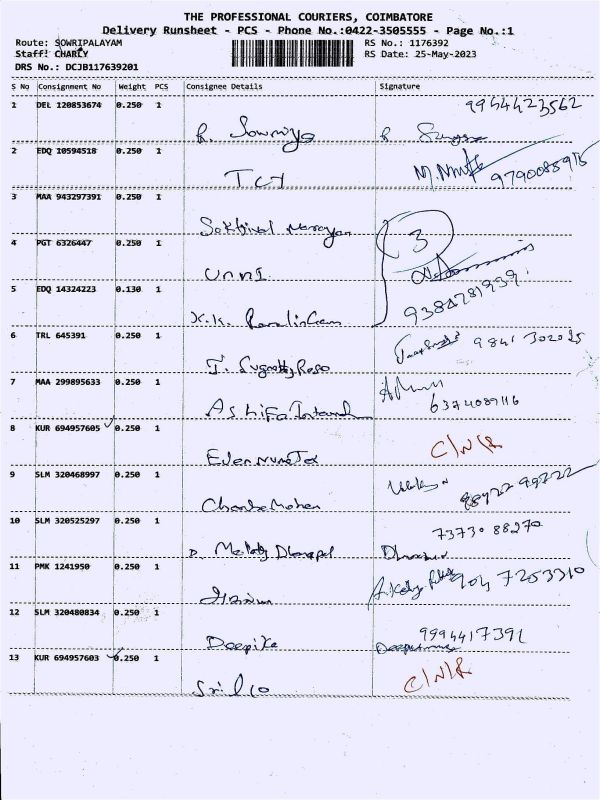 THE PROFESSIONAL COURIERS, COIMBATORE
Delivery Runsheet - PCS - Phone No.:0422-3505555 - Page No.:1
Route: SOWRIPALAYAM
RS No.: 1176392
Staff: CHARLY
RS Date: 25-May-2023
DRS No.: DCJB117639201
S No Consignment No Weight PCS Consignee Details Signature
1 DEL 120853674 0.250 1 9944423562
R. Sowmiya R
2 EDQ 10594518 0.250 1
TCY 9790085915
3 MAA 943297391 0.250 1
Sakthivel Narayan 3
4 PGT 6326447 0.250 1
Unni
5 EDQ 14324223 0.130 1 9384281939
K.K.
6 TRL 645391 0.250 1 9841 302025
J.
7 MAA 299895633 0.250 1
6374089116
8 KUR 694957605 0.250 1
C/N/R
9 SLM 320468997 0.250 1
98422 99222
10 SLM 320525297 0.250 1 73730 88270
11 PMK 1241950 0.250 1
904 7253310
12 SLM 320480834 0.250 1
Deepika 9994417391
13 KUR 694957603 0.250 1
C/N/R